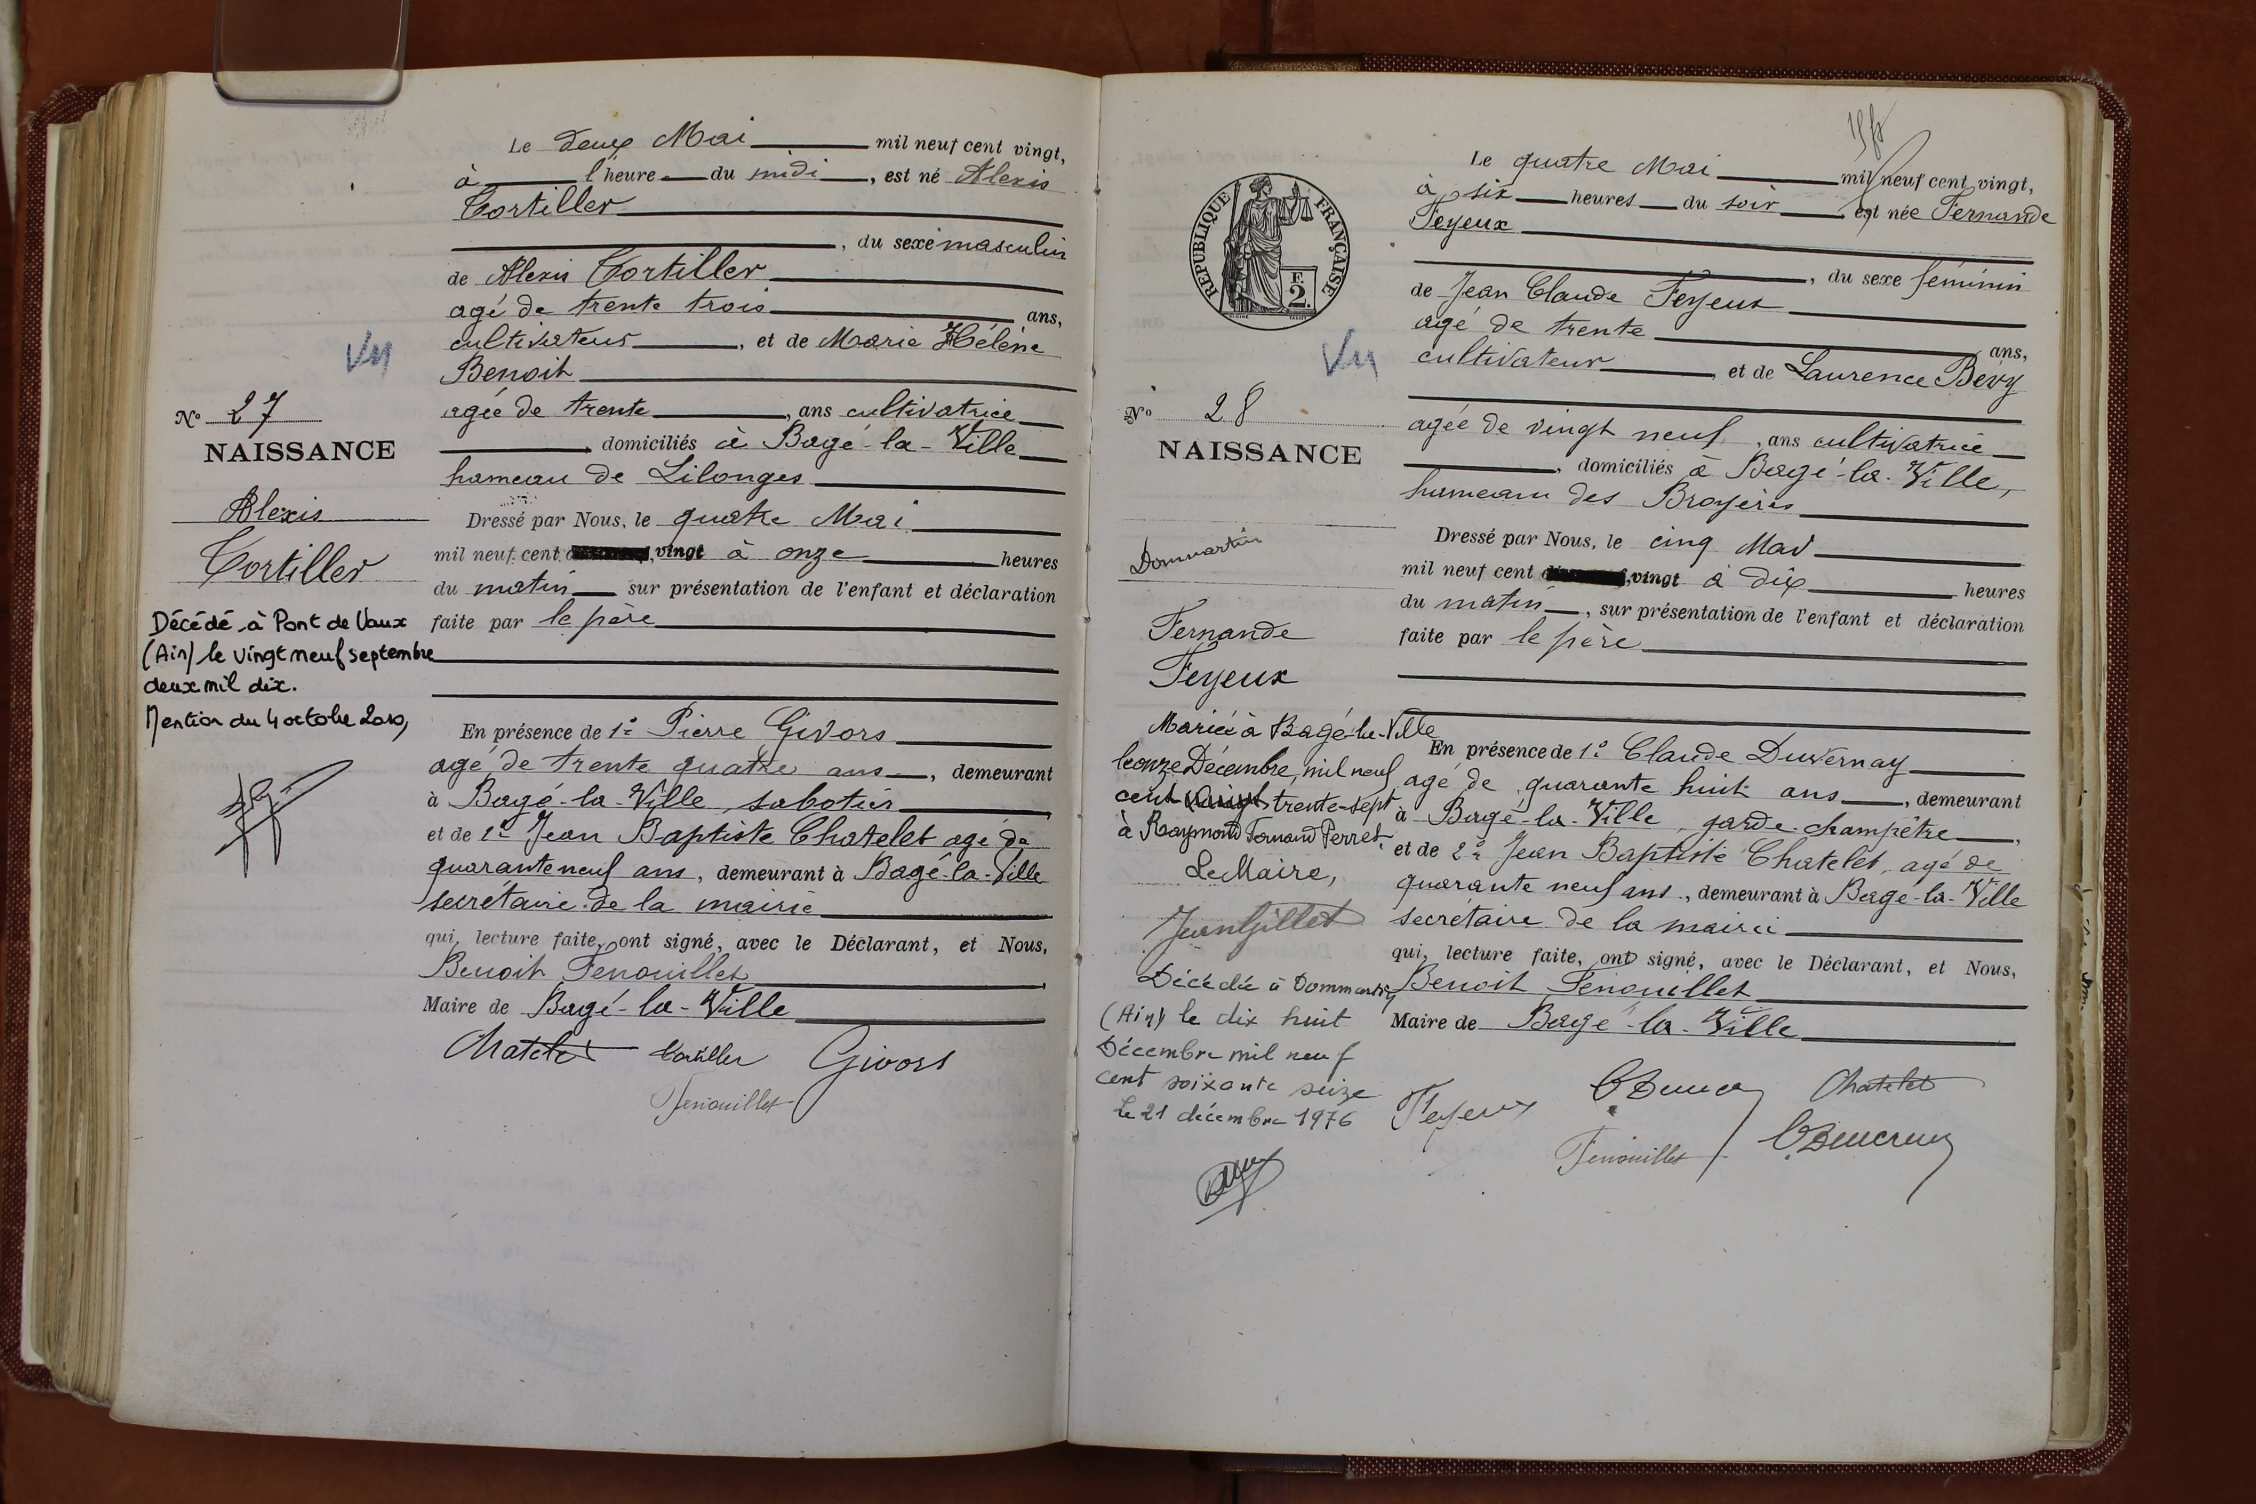 Le deux Mai mil neuf cent vingt,
à l'heure du midi, est né Alexis
Tortiller
, du sexe masculin
de Alexis Tortiller
agé de trente trois ans,
cultivateur, et de Marie Hélène
Benoit
agée de trente, ans cultivatrice
, domiciliés à Bagé-la-Ville
hameau de Lilonges
Dressé par Nous, le quatre Mai
mil neuf cent vingt à onze heures
du matin sur présentation de l'enfant et déclaration
faite par le père
En présence de 1° Pierre Givors
agé de trente quatre ans, demeurant
à Bagé-la-Ville, sabotier
et de 2° Jean Baptiste Chatelet agé de
quarante neuf ans, demeurant à Bagé-la-Ville
secrétaire de la mairie
qui, lecture faite, ont signé, avec le Déclarant, et Nous,
Benoit Fenouillet
Maire de Bagé-la-Ville
Chatelet Tortiller Givors
Fenouillet
Vu
N° 27
NAISSANCE
Alexis
Tortiller
Décédé à Pont de Vaux
(Ain) le vingt neuf septembre
deux mil dix.
Mention du 4 octobre 2010,
Le quatre Mai mil neuf cent vingt,
à six heures du soir est née Fernande
Feyeux
, du sexe féminin
de Jean Claude Feyeux
agé de trente ans,
cultivateur, et de Laurence Bévy
agée de vingt neuf, ans cultivatrice
, domiciliés à Bagé-la-Ville,
hameau des Broyères
Dressé par Nous, le cinq Mai
mil neuf cent vingt à dix heures
du matin, sur présentation de l'enfant et déclaration
faite par le père
En présence de 1° Claude Duvernay
agé de quarante huit ans, demeurant
à Bagé-la-Ville, garde-champêtre,
et de 2° Jean Baptiste Chatelet, agé de
quarante neuf ans, demeurant à Bagé-la-Ville
secrétaire de la mairie
qui, lecture faite, ont signé, avec le Déclarant, et Nous,
Benoit Fenouillet
Maire de Bagé-la-Ville
Feyeux Chatelet
Fenouillet
REPUBLIQUE FRANÇAISE
F.
2.
Vu
N° 28
NAISSANCE
Dommartin
Fernande
Feyeux
Mariée à Bagé-la-Ville
le onze Décembre, mil neuf
cent vingt trente-sept
à Raymond Fernand Perret.
Le Maire,
Jean Gillet
Décédée à Dommartin
(Ain) le dix huit
Décembre mil neuf
cent soixante seize
Le 21 décembre 1976